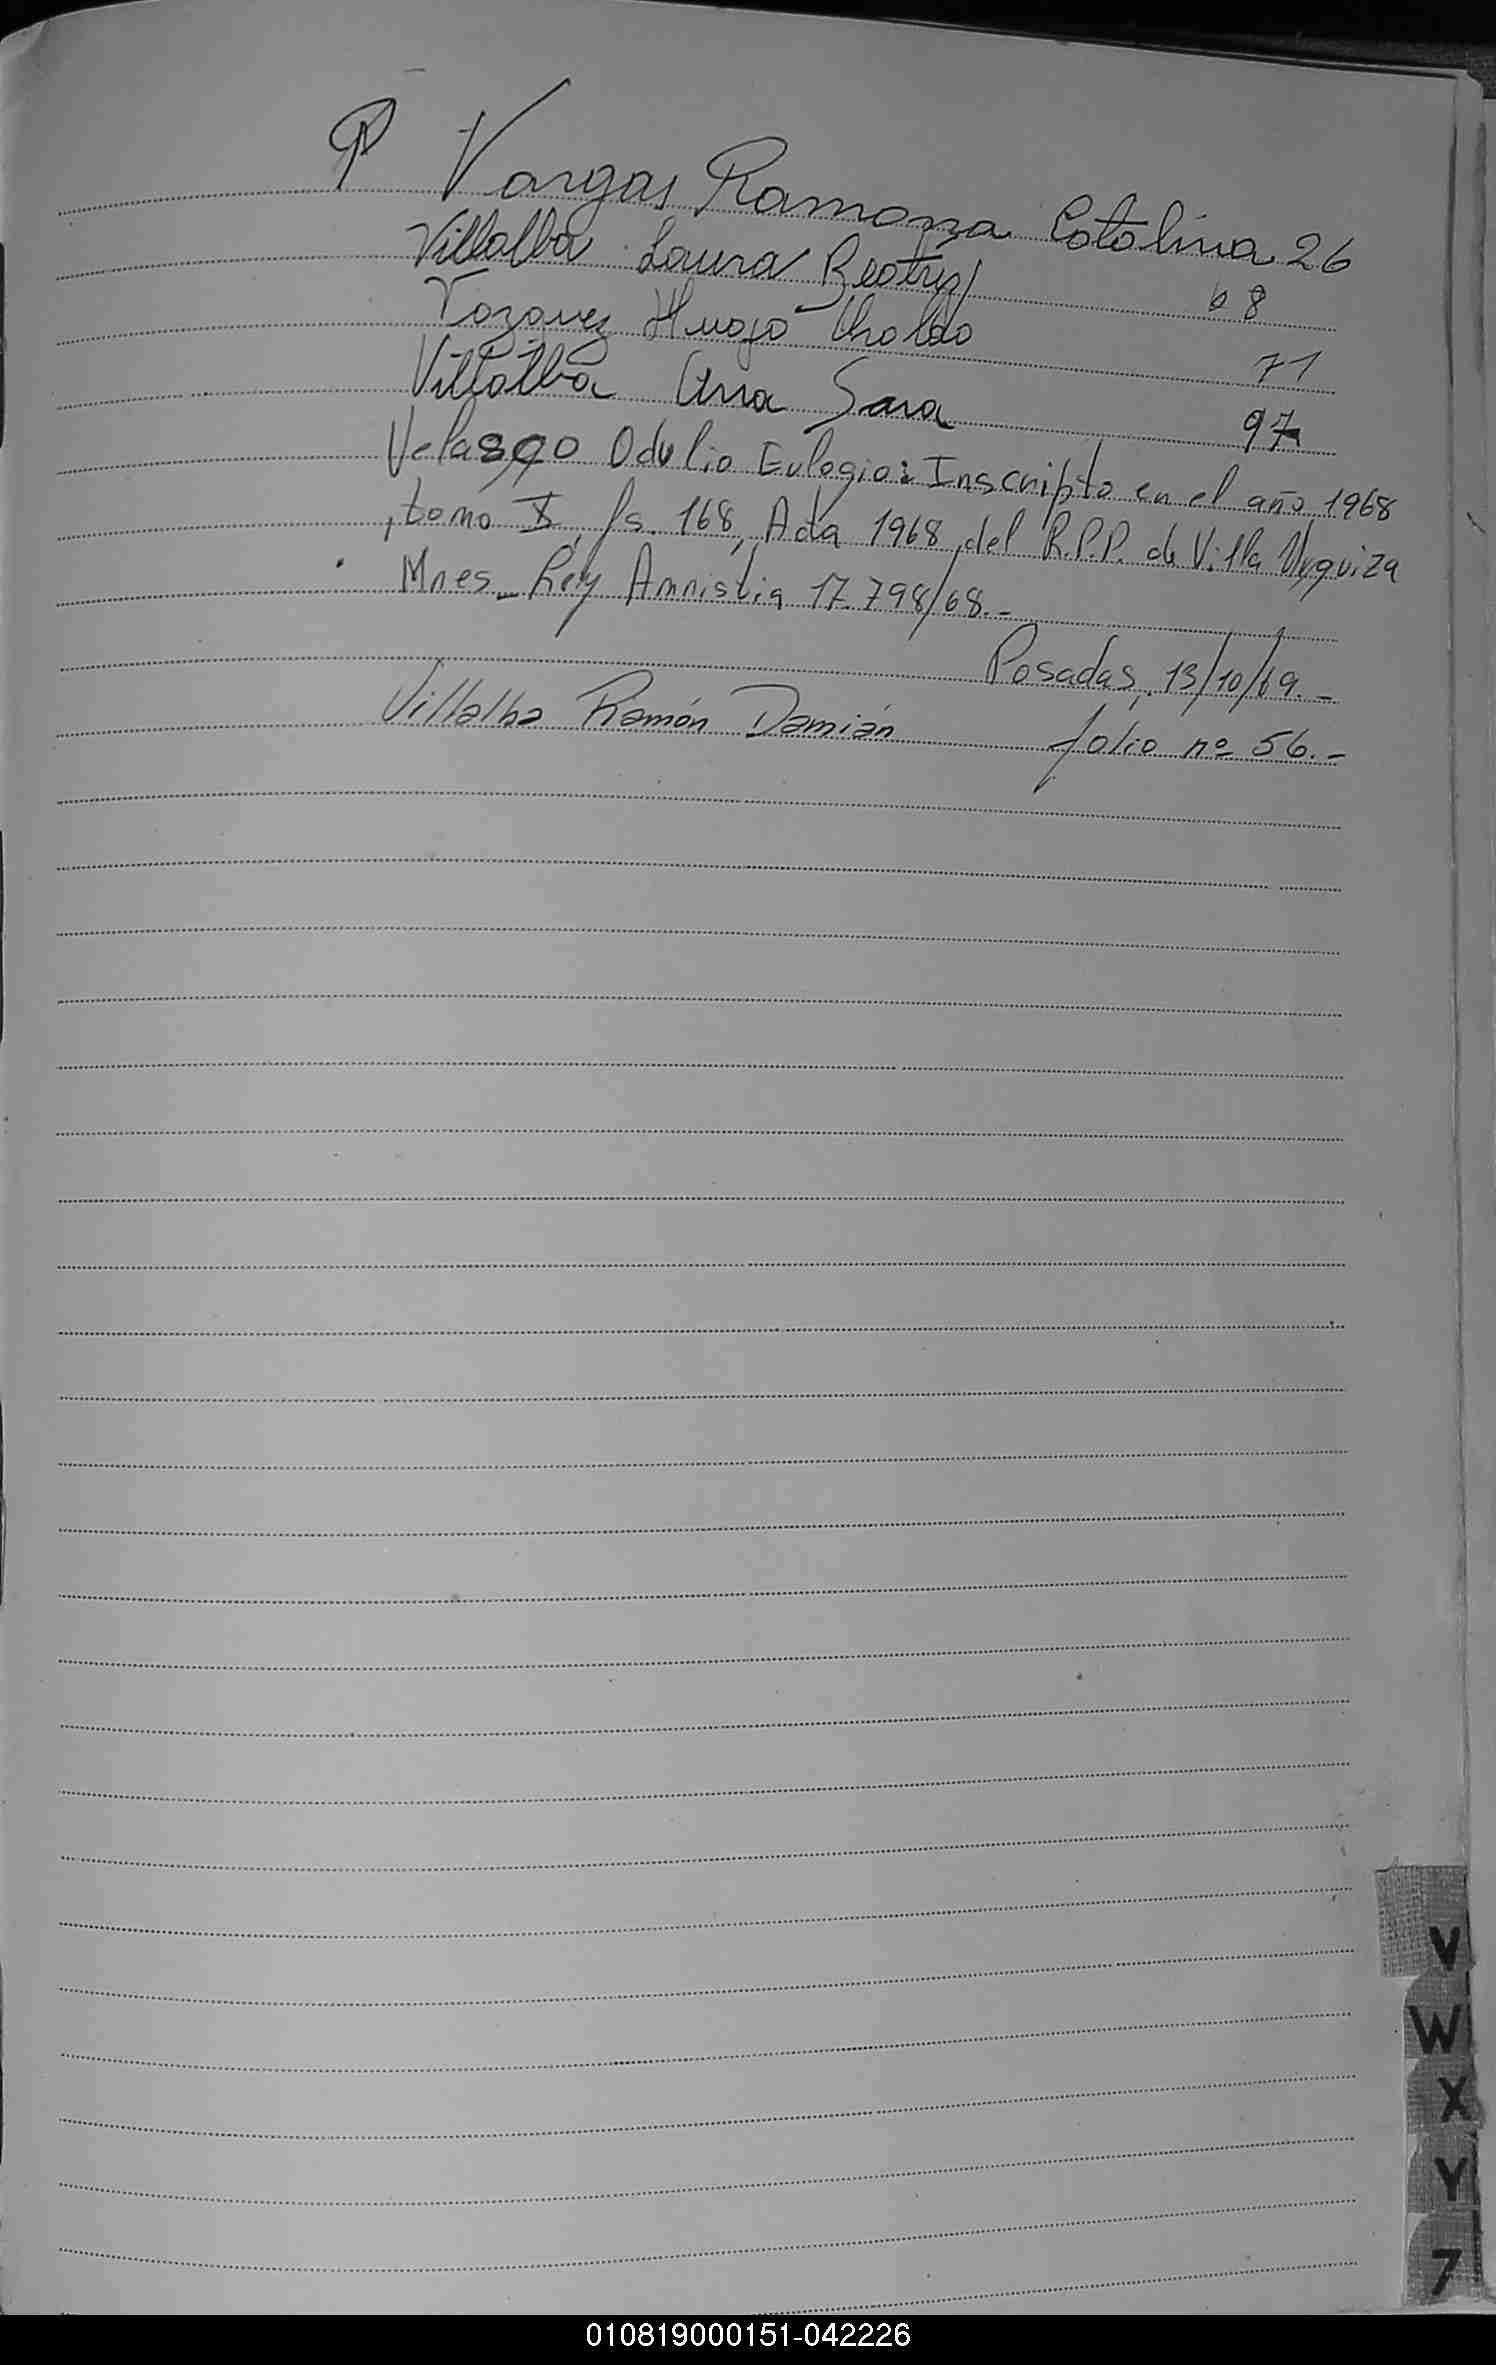 Vargas Ramona Catalina 26
Villalba Laura Beatriz 68
Vazquez Hugo 71
Villalba Ana Sara 97
Velasco Odulio Eulogio: Inscripto en el año 1968
, tomo I, fs. 168, Acta 1968, del R.P.P. de Villa Urquiza
Mnes_ Ley Amnistia 17.798/68.-
Posadas, 13/10/69.-
Villalba Ramón Damián folio nº 56.-
V
W
X
Y
Z
010819000151-042226